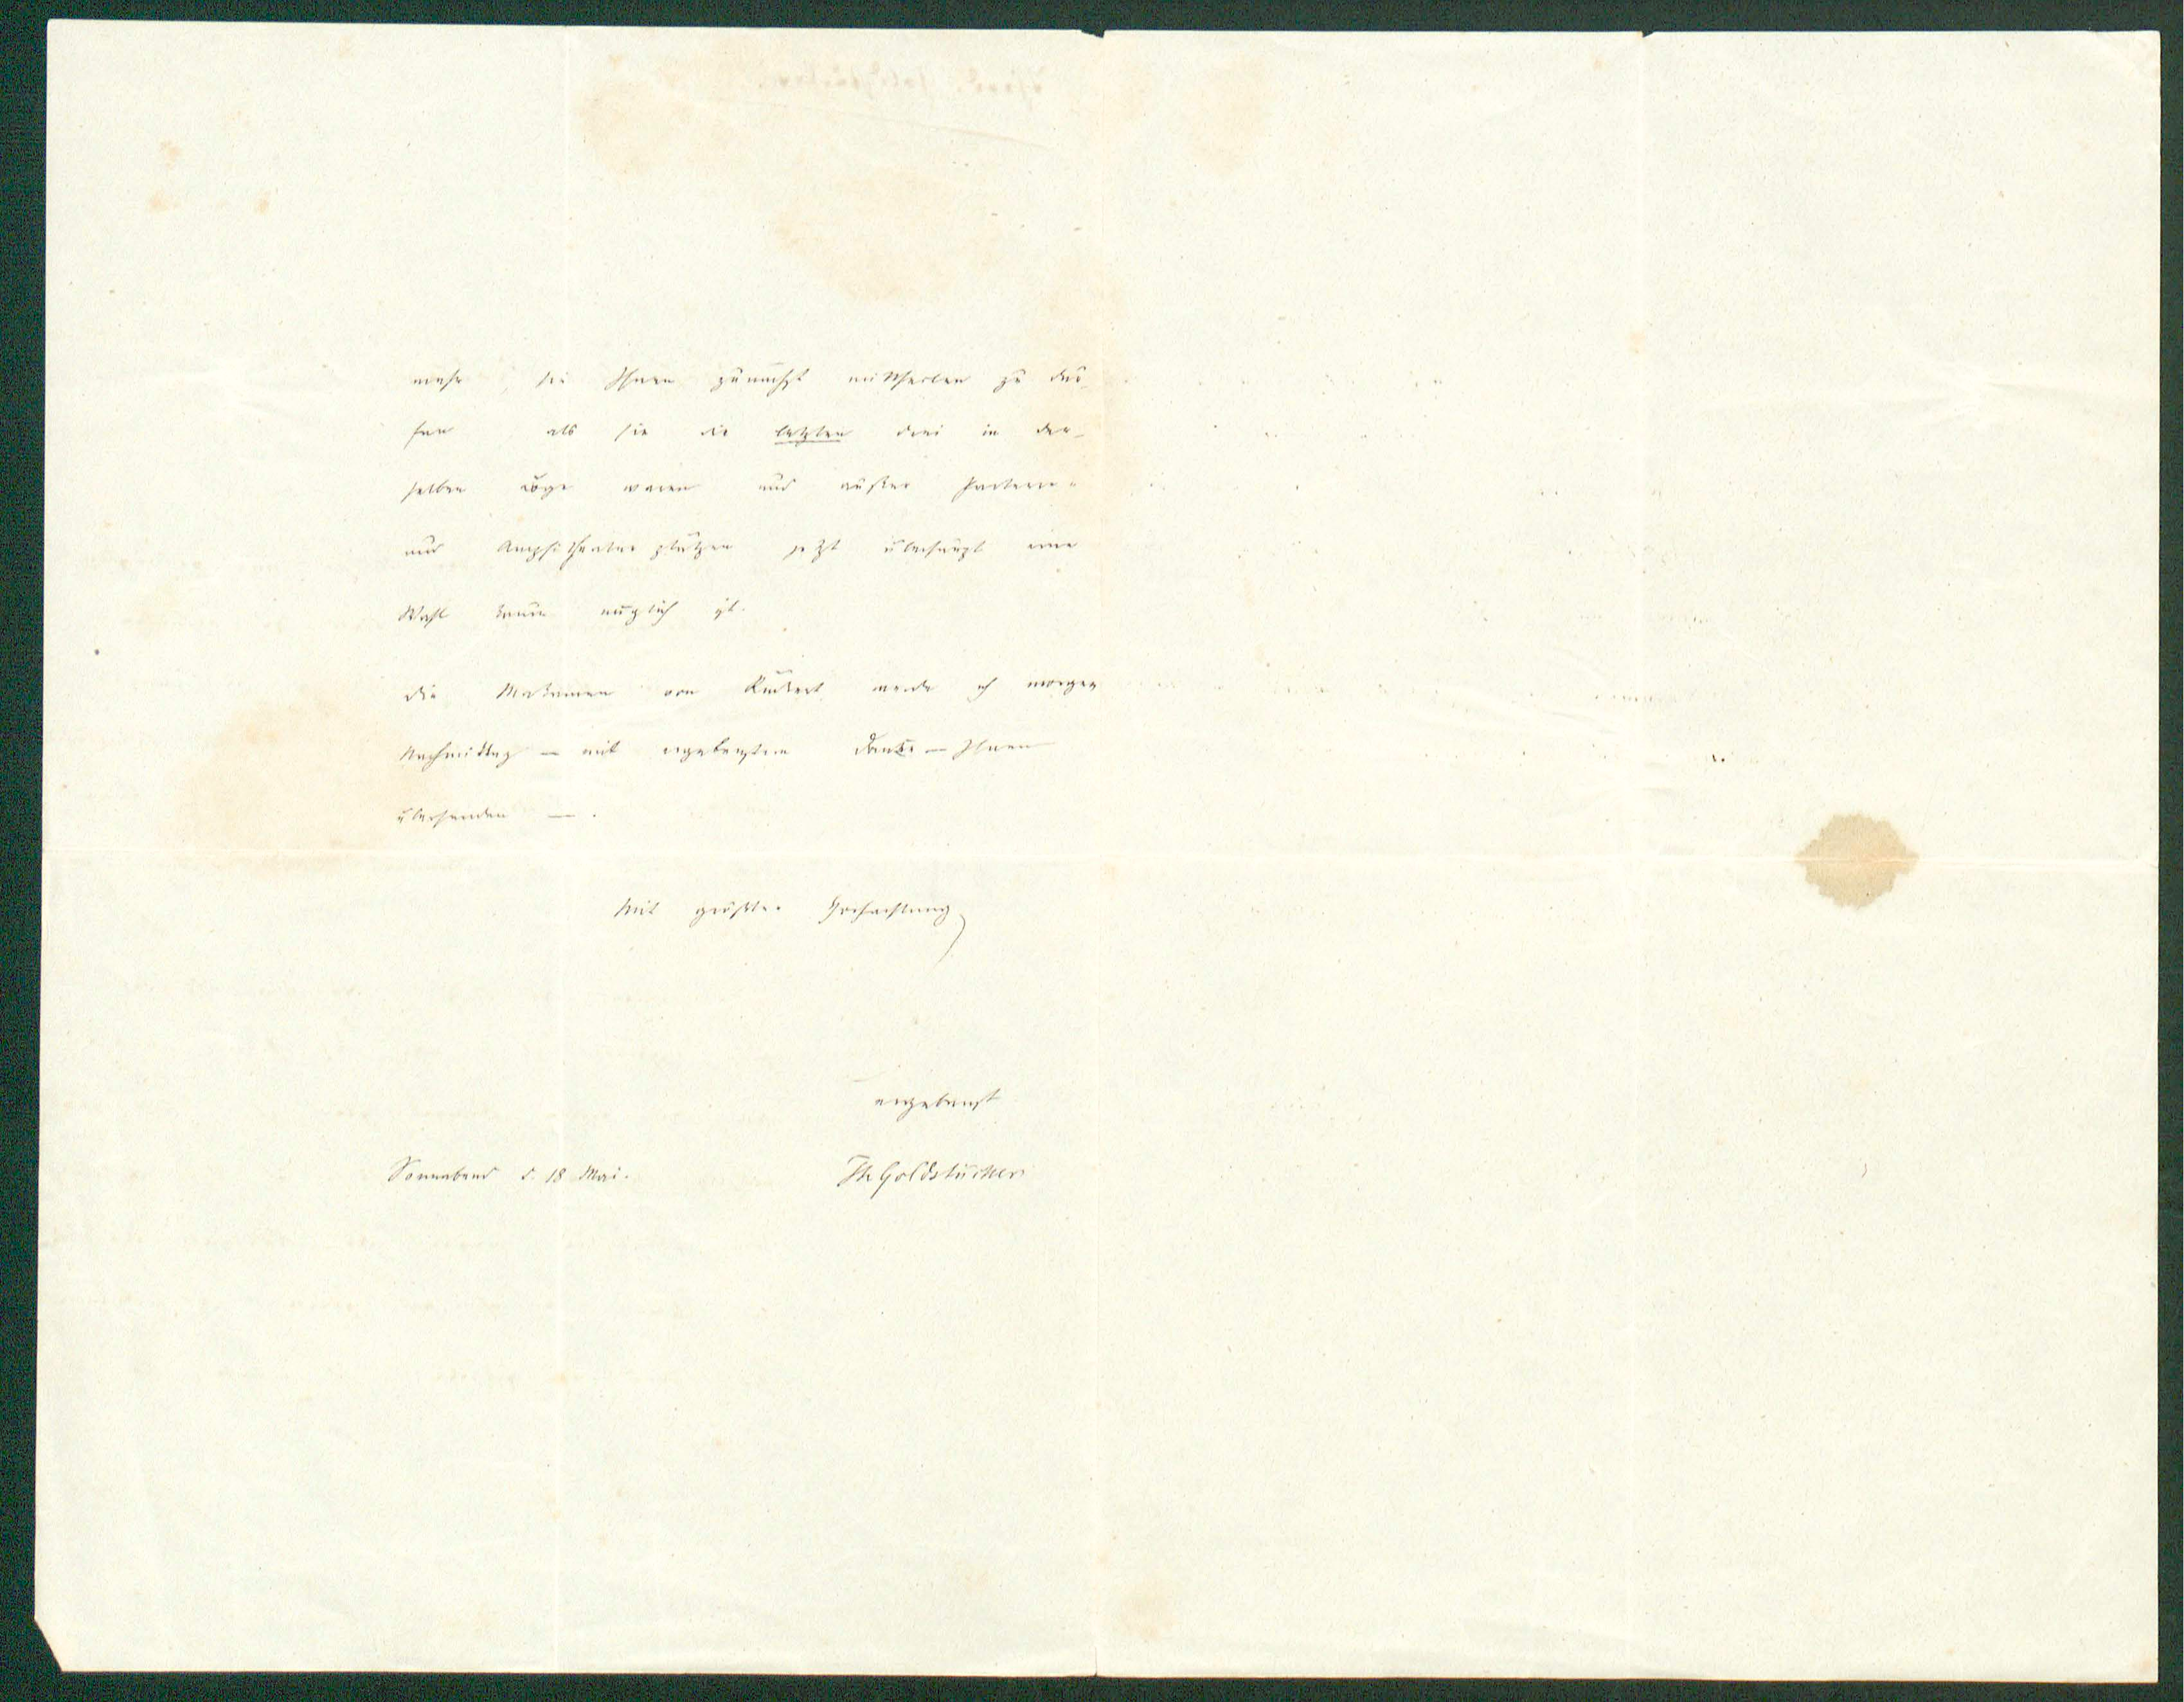 mehr, sie Ihnen zunächst mittheilen zu dür-
fen als sie die letzten drei in der-
selben Loge waren und außer Parterre-
und Amphitheater plätzen jetzt überhaupt eine
Wahl kaum möglich ist.
Die Makamen von Rückert werde ich morgen
Nachmittag – mit ergebenstem Danke – Ihnen
übersenden –.
Mit größter Hochachtung
ergebenst
Sonnabend d. 18 Mai. Th Goldstücker